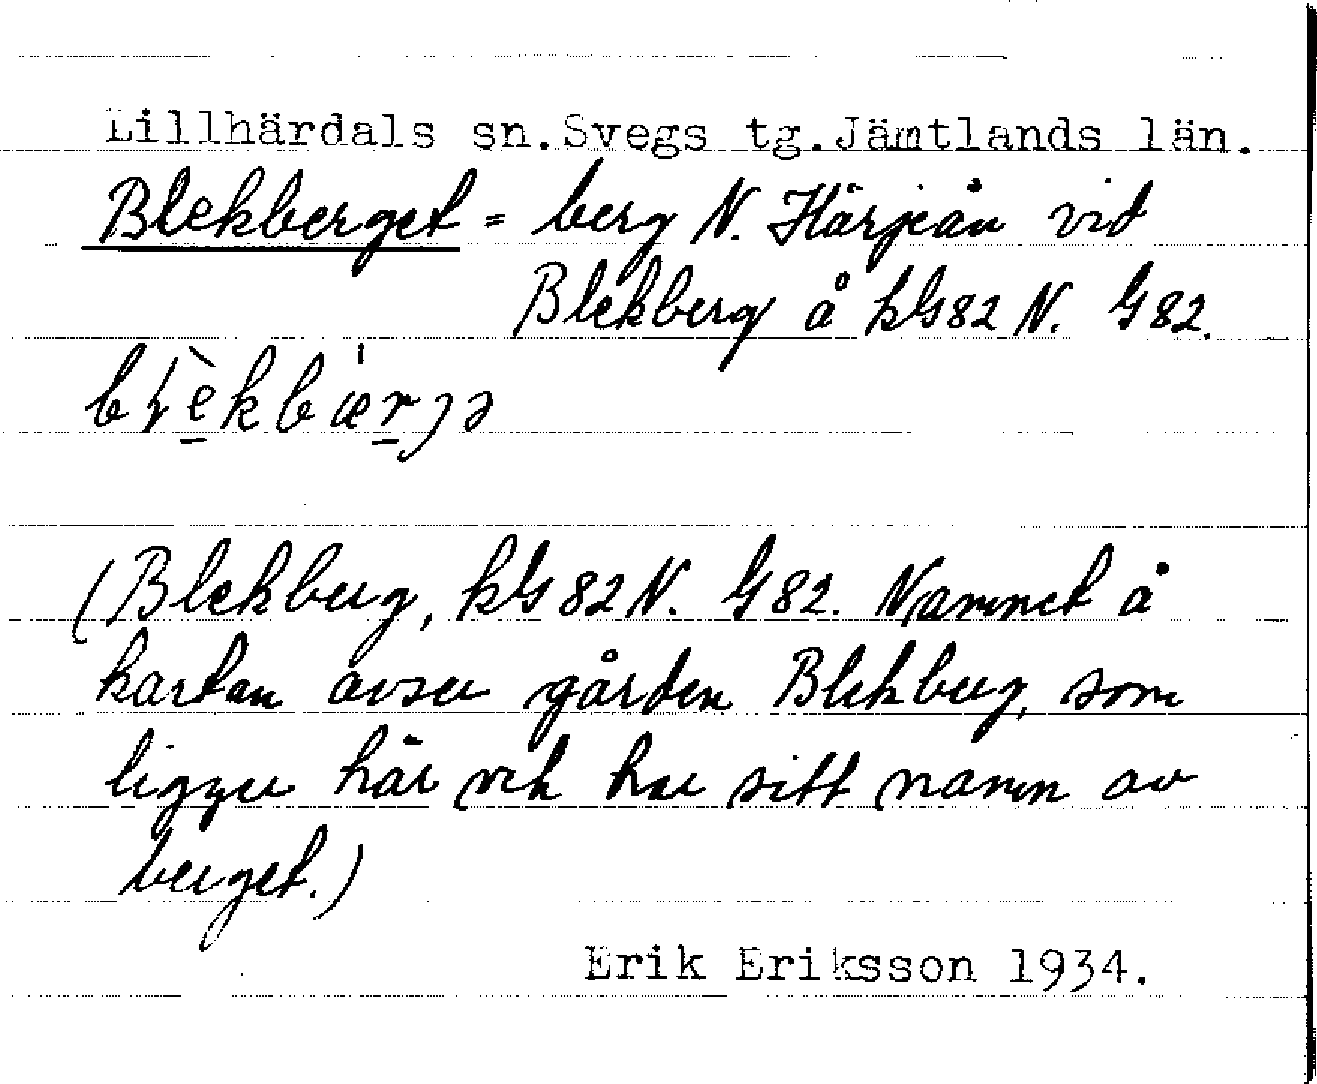 Lillhärdals sn. Svegs tg. Jämtlands län.
Blekberget = berg N. Härjeån vid
Blekberg å kG82 N. G82.
(Blekberg, kG82N. G82. Namnet å
kartan avser gården Blekberg, som
ligger här och har sitt namn av
berget.)
Erik Eriksson 1934.